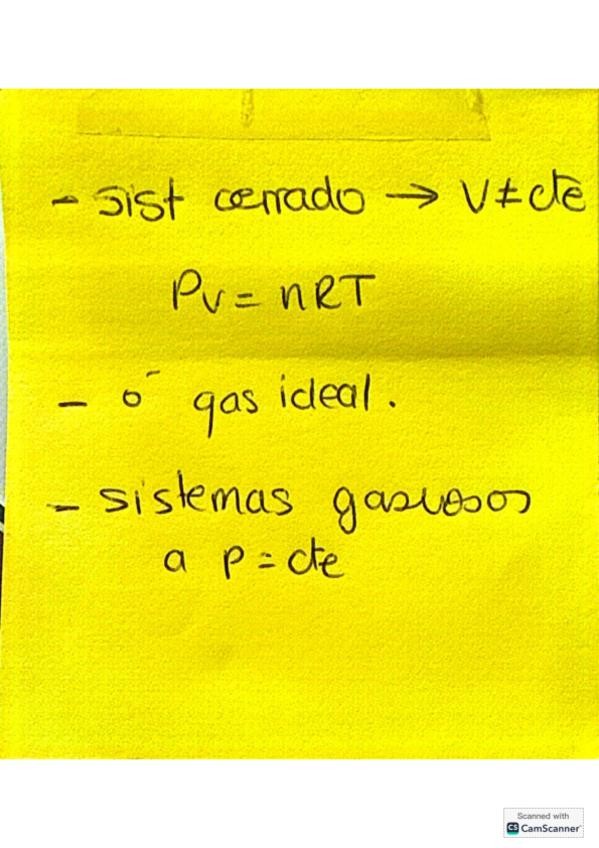 - Sist cerrado → V ≠ cte
PV = nRT
- ó gas ideal.
- sistemas gaseosos
a p = cte
Scanned with
CS CamScanner